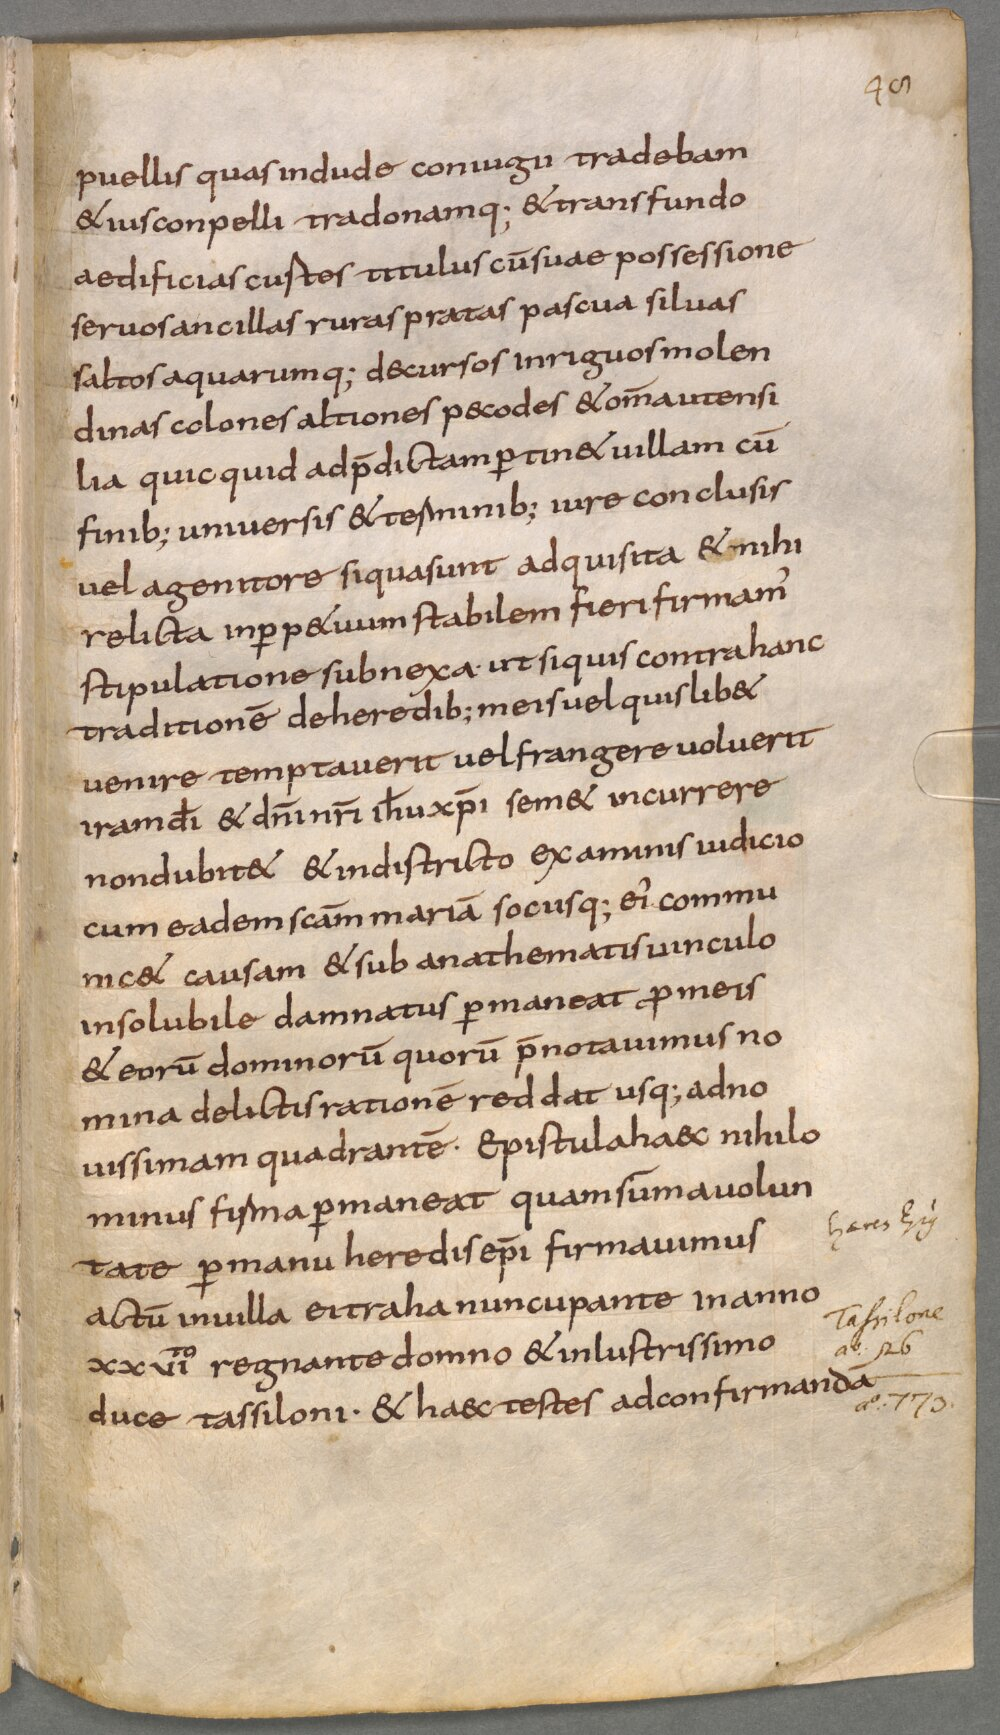 45
puellis quas indude coniugii tradebam
& ius conpelli tradonamq; & transfundo
aedificias custes titulus cū suae possessione
seruos ancillas ruras pratas pascua siluas
saltos aquarumq; decursos inriguos molen
dinas colones altiones pecodes & om̄a utensi
lia quicquid ad p̄dictam ꝑtin& uillam cū
finib; uniuersis & terminib; iure conclusis
uel agenitore siquasunt adquisita & mihi
relicta inꝑp&uum stabilem fieri firmam̉
stipulatione subnexa· ut siquis contra hanc
traditionē de heredib; meis uel quislib&
uenire temptauerit uel frangere uoluerit
iram dī & dn̄i nr̄i ih̄u xp̄i sem& incurrere
non dubit& & in districto examinis iudicio
cum eadem sc̄am mariā socusq; ei̓ commu
nic& causam & sub anathematis uinculo
insolubile damnatus ꝑmaneat ꝓ meis
& eorū dominorū quorū p̄notauimus no
mina delictis rationē reddat usq; ad no
uissimam quadrantē· Epistula haec nihilo
minus firma ꝑmaneat quam sūma uolun
tate ꝑ manu heredis ep̄i firmauimus
hares Ep̄i
actū in uilla eitraha nuncupante in anno
Tassilone
xxvi̅ᵗᵒ regnante domno & inlustrissimo
aº: 26
duce tassiloni· & haec testes ad confirmandā
aº: 773.